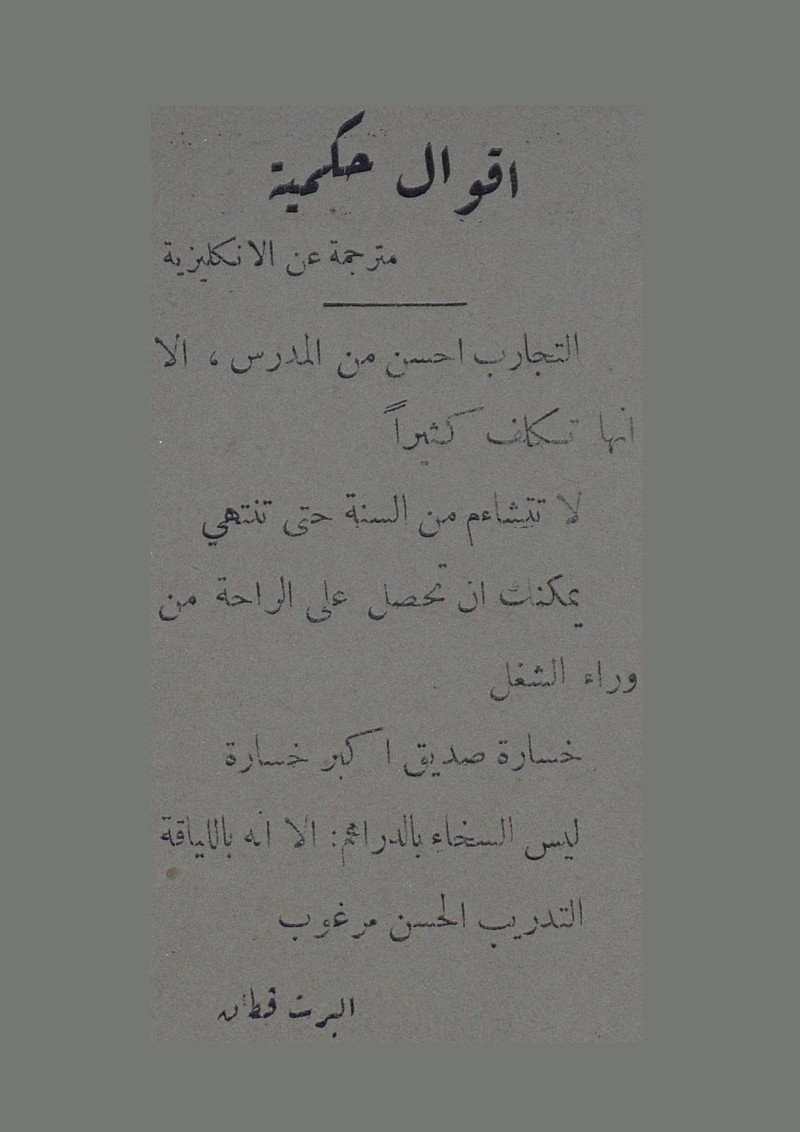 اقوال حكمية
مترجمة عن الانكليزية
التجارب احسن من المدرس ، الا
انها تكلف كثيراً
لا تتشاءم من السنة حتى تنتهي
يمكنك ان تحصل على الواحة من
وراء الشغل
خسارة صديق اكبر خسارة
ليس السخاء بالدراهم: الا انه باللياقة
التدريب الحسن مرغوب
البرت قطان